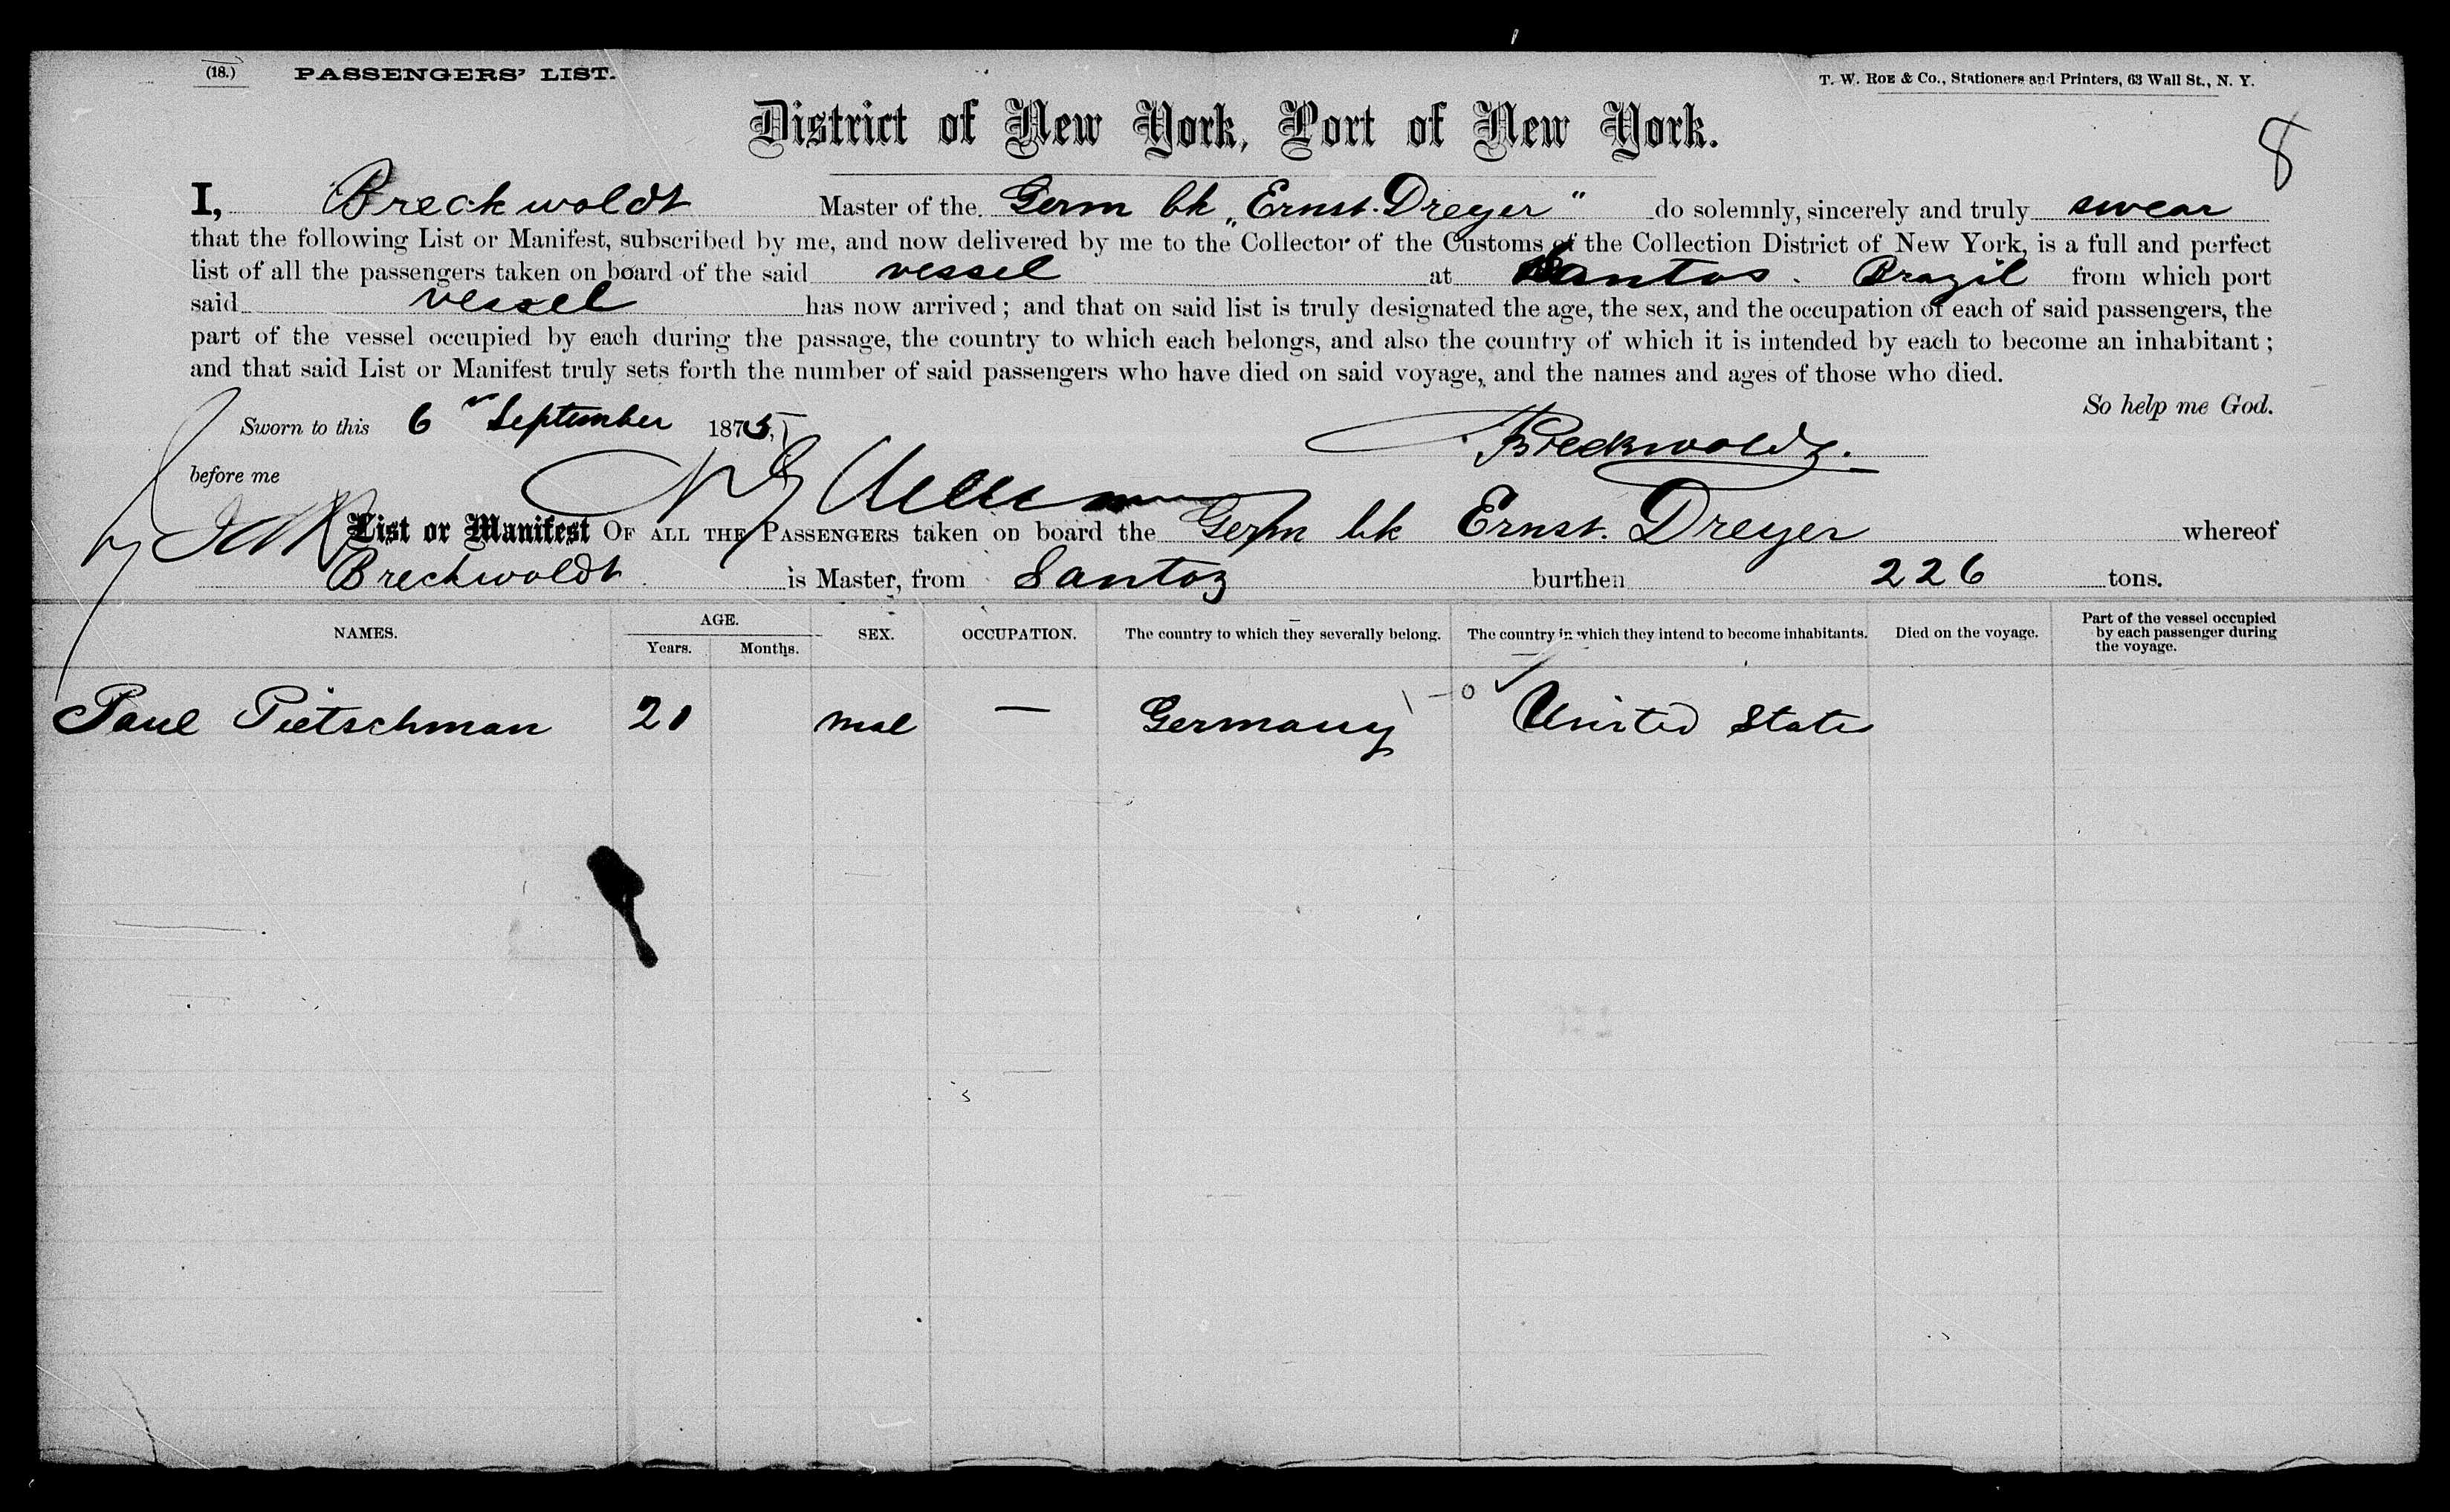 (18.) PASSENGERS' LIST. T. W. ROE & Co., Stationers and Printers, 63 Wall St., N. Y.
District of New York, Port of New York.
8
I, Breckwoldt Master of the Germ bk „Ernst. Dreyer" do solemnly, sincerely and truly swear
that the following List or Manifest, subscribed by me, and now delivered by me to the Collector of the Customs of the Collection District of New York, is a full and perfect
list of all the passengers taken on board of the said vessel at Santos. Brazil from which port
said vessel has now arrived; and that on said list is truly designated the age, the sex, and the occupation of each of said passengers, the
part of the vessel occupied by each during the passage, the country to which each belongs, and also the country of which it is intended by each to become an inhabitant;
and that said List or Manifest truly sets forth the number of said passengers who have died on said voyage, and the names and ages of those who died.
So help me God.
Sworn to this 6 September 1875,
Breckwoldt.
before me
List or Manifest OF ALL THE PASSENGERS taken on board the Germ bk Ernst. Dreyer whereof
Breckwoldt. is Master, from Santos burthen 226 tons.
NAMES. AGE. Years. Months. SEX. OCCUPATION. The country to which they severally belong. The country in which they intend to become inhabitants. Died on the voyage. Part of the vessel occupied by each passenger during the voyage.
Paul Pietschman 21 mal — Germany United States